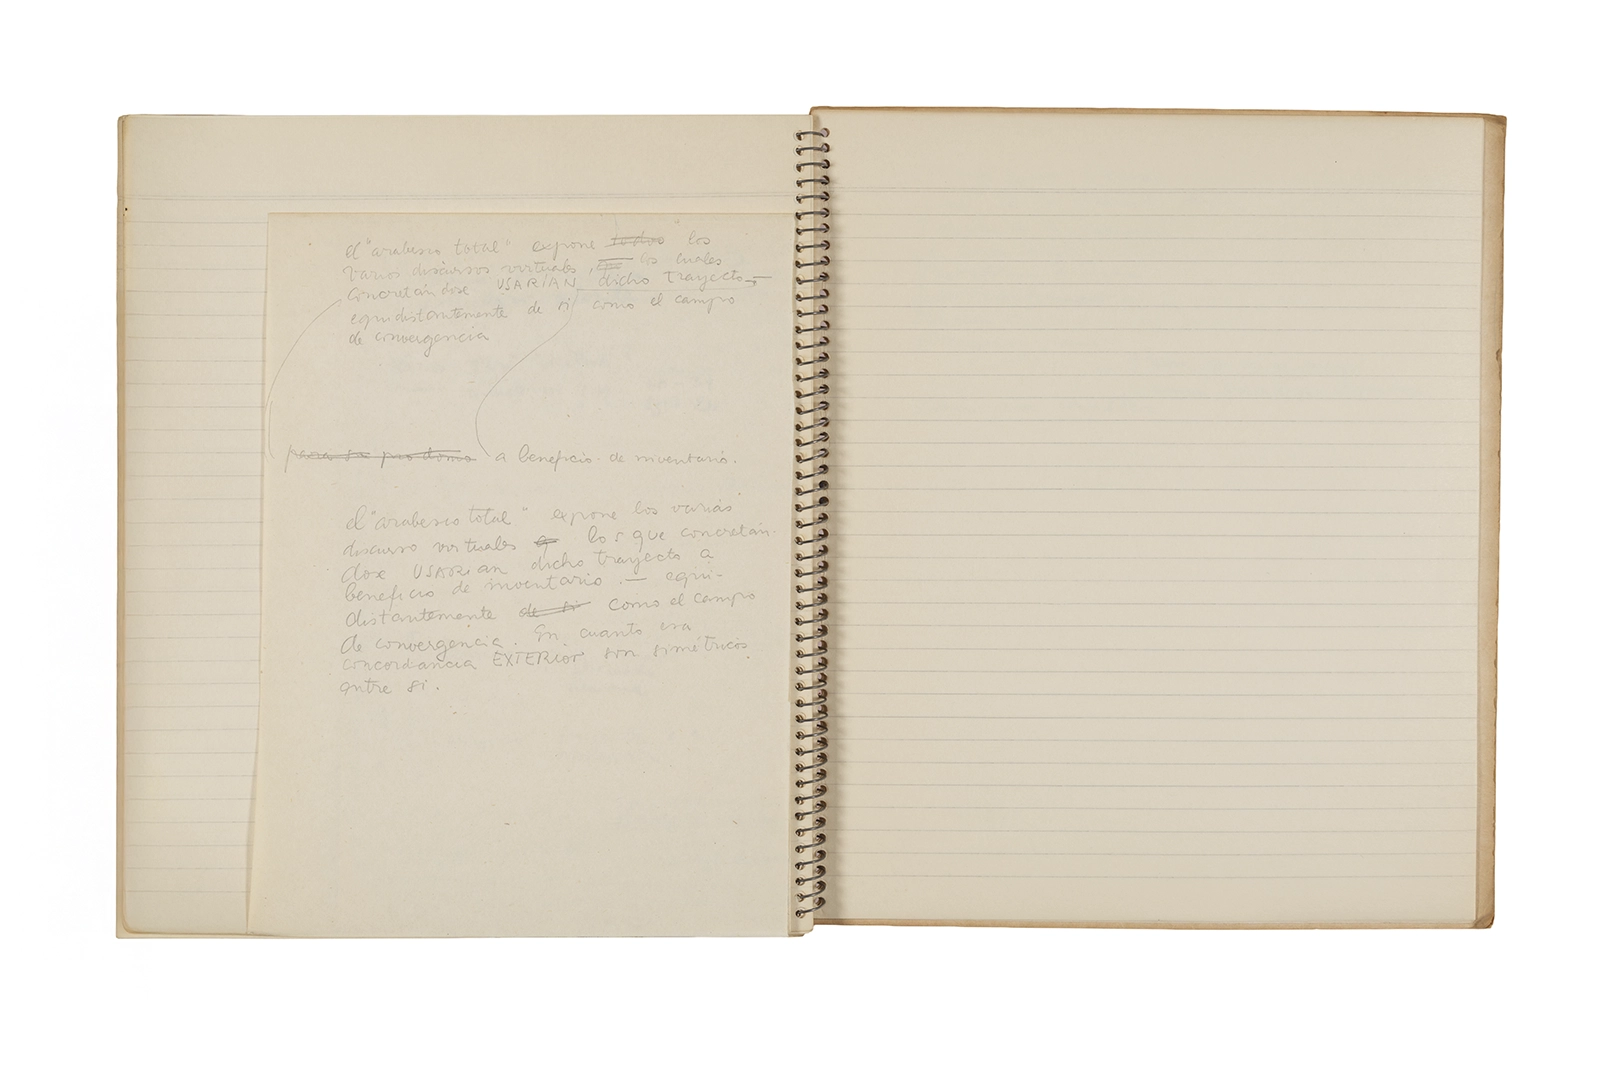 el "arabesco total" expone todos "los
varios discursos virtuales, los cuales
concretándose USARIAN dicho trayecto —
equidistantemente de si como el campo
de convergencia
para su pro domo a beneficio de inventario.
el "arabesco total" expone los varias
discurso virtuales q los que concretán-
dose USARian dicho trayecto a
beneficio de inventario. — equi-
distantemente de si como el campo
de convergencia. En cuanto esa
concordancia EXTERIOR son simétricos
entre si.